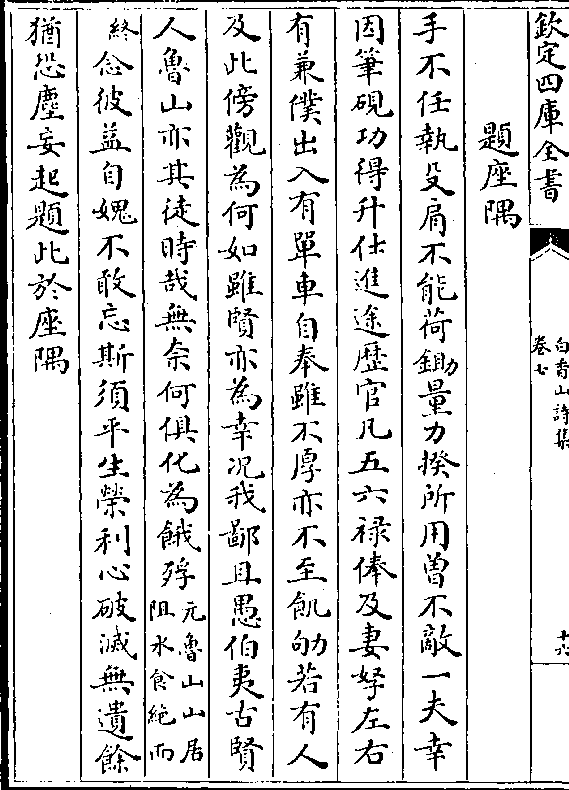 欽定四庫全書
白香山詩集
卷七
十六
題座隅
手不任執殳肩不能荷鋤量力揆所用曾不敵一夫幸
因筆硯功得升仕進途歴官凡五六禄俸及妻孥左右
有兼僕出入有單車自奉雖不厚亦不至飢劬若有人
及此傍觀為何如雖賢亦為幸况我鄙且愚伯夷古賢
人魯山亦其徒時哉無奈何俱化為餓殍
元魯山山居
阻水食絶而
終
念彼益自媿不敢忘斯須平生榮利心破滅無遺餘
猶恐塵妄起題此於座隅